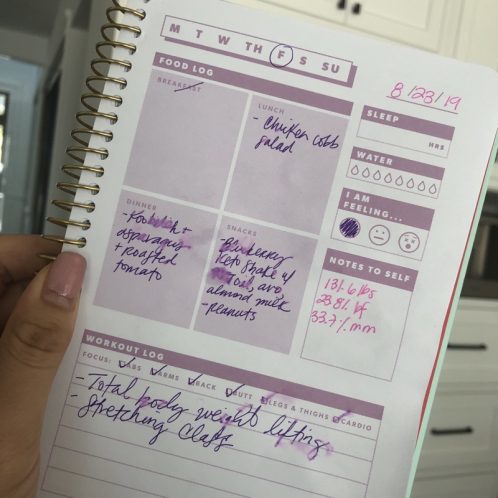 M T W TH F S SU
8/23/19
FOOD LOG
BREAKFAST
LUNCH
- Chicken cobb
salad
DINNER
asparagus
+ Roasted
tomato
SNACKS
- Blueberry
Keto shake w/
avo,
almond milk
- Peanuts
SLEEP
HRS
WATER
I AM
FEELING...
NOTES TO SELF
131.6 lbs
23.8% bf
33.7% mm
WORKOUT LOG
FOCUS: ABS ARMS BACK BUTT LEGS & THIGHS CARDIO
- Total body weight lifting
- Stretching Class